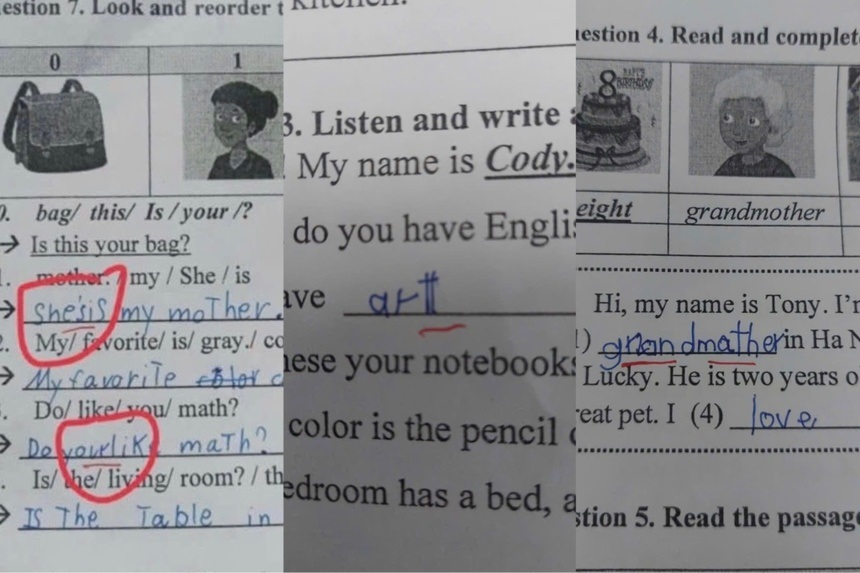 estion 7. Look and reorder t
0 1
0. bag/ this/ Is / your /?
→ Is this your bag?
1. mother. / my / She / is
→ She'sis my moTher.
2. My/ favorite/ is/ gray./ co
→ My favorite color c
. Do/ like/ you/ math?
→ Do yourlik maTh?
. Is/ the/ living/ room? / th
→ Is The Table in
kitchen.
3. Listen and write a
My name is Cody.
do you have Englis
ave art
nese your notebooks
color is the pencil c
edroom has a bed, a
estion 4. Read and complet
8 HAPPY BIRTHDAY
eight grandmother
Hi, my name is Tony. I'm
1) grandmather in Ha N
Lucky. He is two years o
reat pet. I (4) love
stion 5. Read the passage